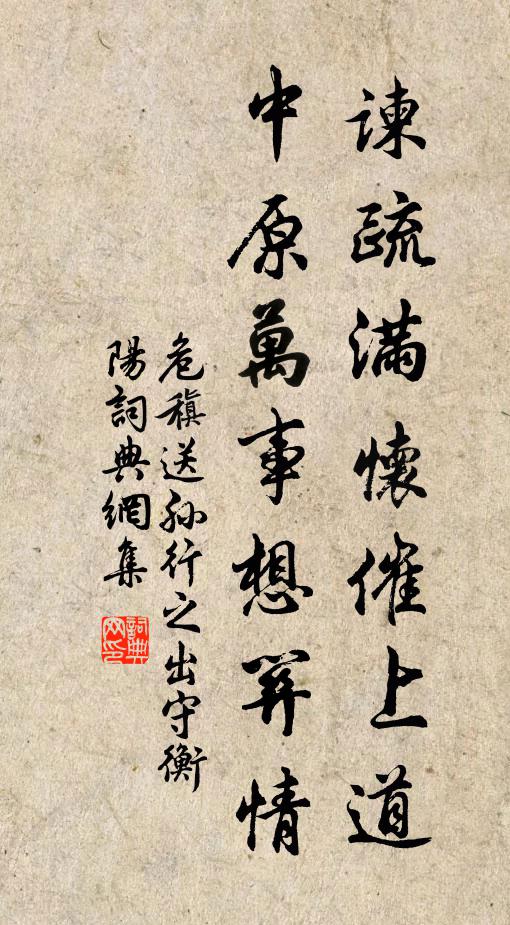 諫疏滿懷催上道
中原萬事想關情
危稹送孫行之出守衡
陽詞典網集
詞典網印